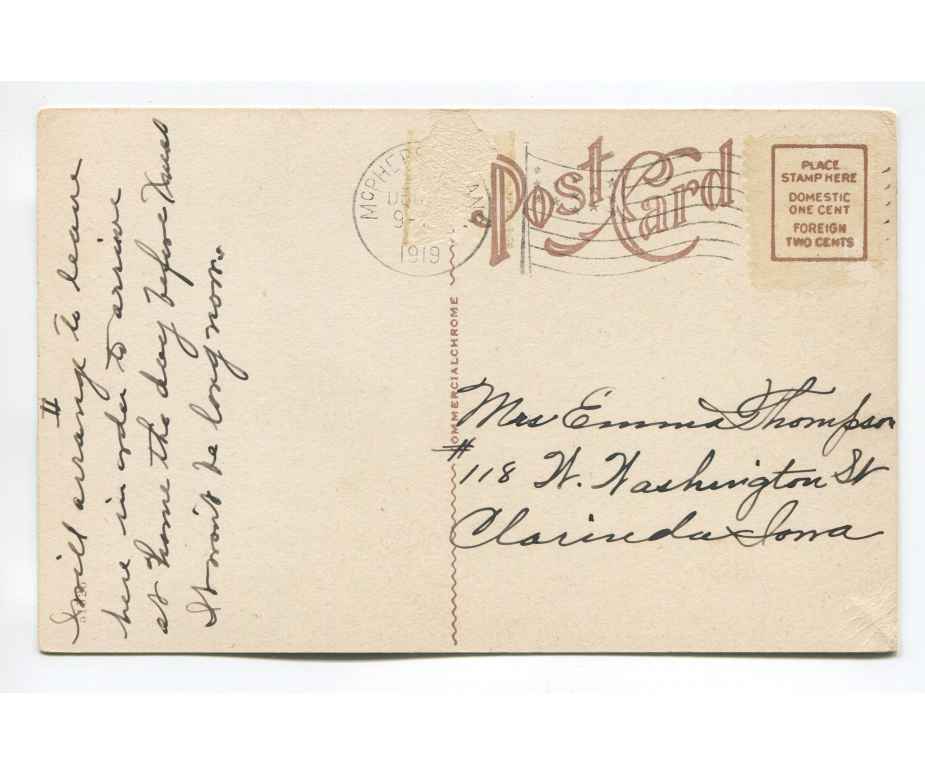 I will arrange to leave
here in order to arrive
at home the day before Xmas
It won't be long now.
McPHER
1919
Post Card
PLACE
STAMP HERE
DOMESTIC
ONE CENT
FOREIGN
TWO CENTS
COMMERCIALCHROME
Mrs Emma Thompson
#118 W. Washington St
Clarinda Iowa